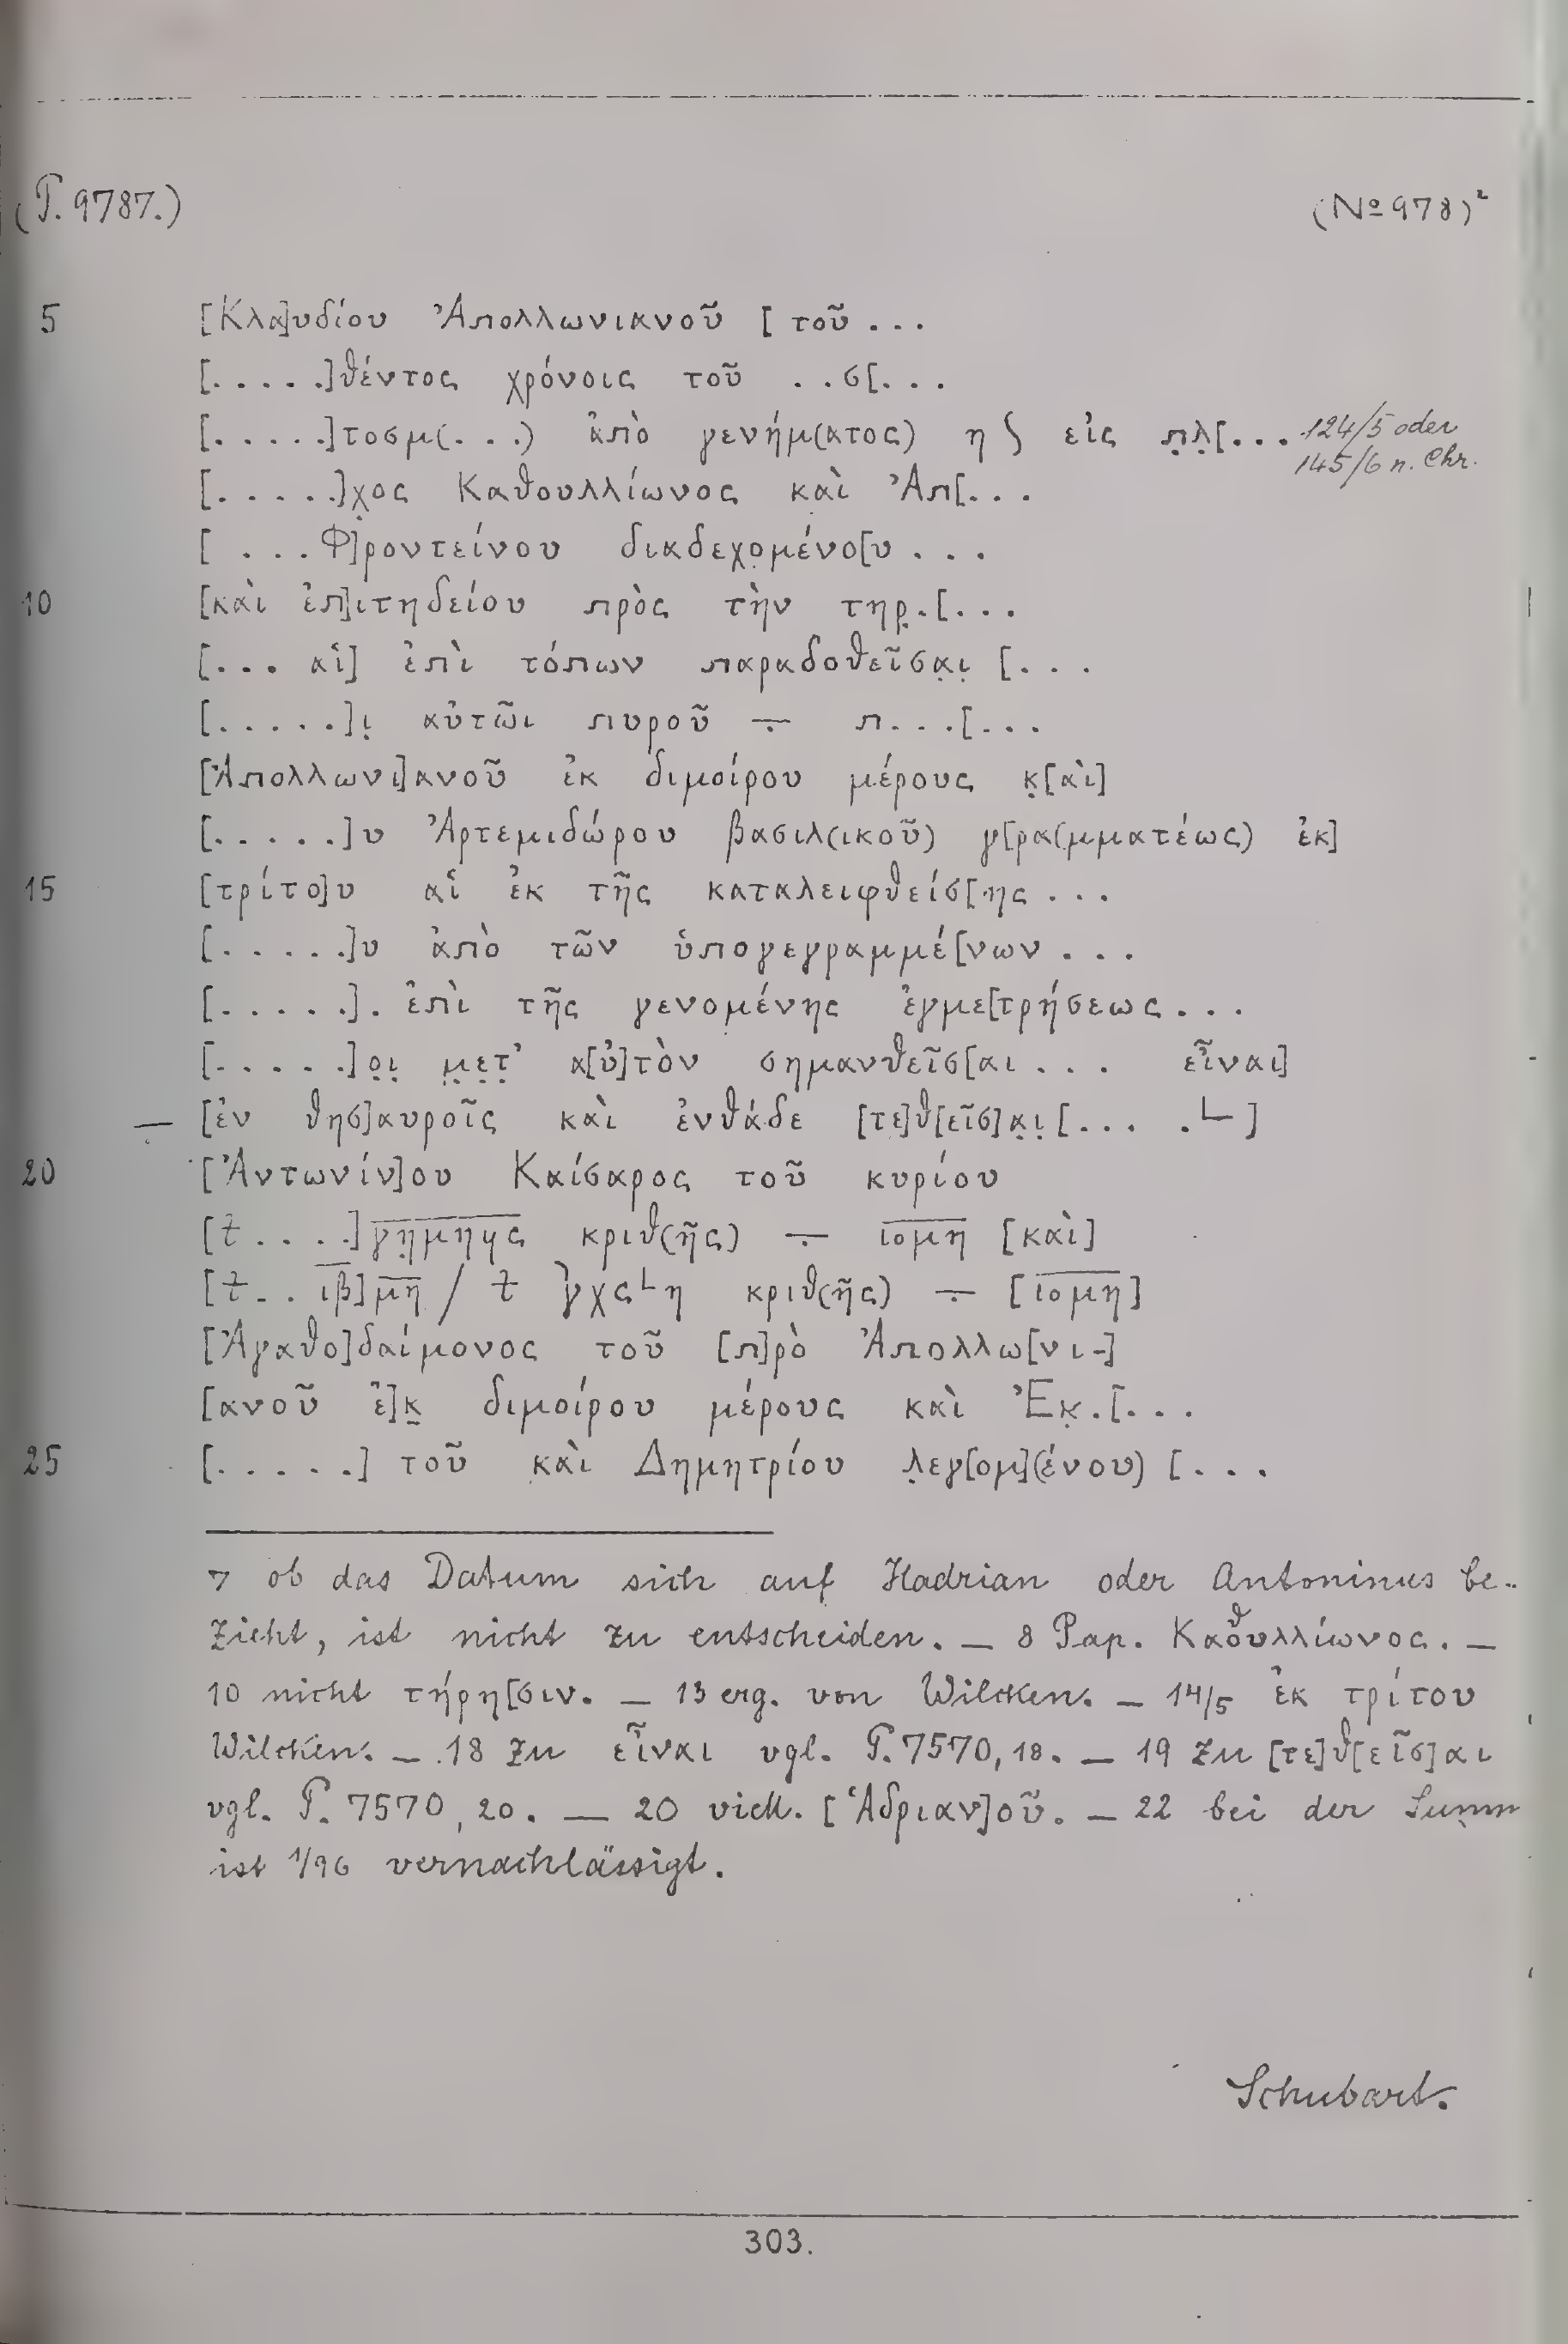 (P. 9787.) (№ 978)²
5 [Κλα]υδίου Ἀπολλωνιανοῦ [ τοῦ ...
[.....]θέντος χρόνοις τοῦ ..σ[...
[.....]τοσμ(...) ἀπὸ γενήμ(ατος) η ʃ εἰς π̣λ̣[... 124/5 oder
145/6 n. Chr.
[.....]χ̣ος Καθουλλίωνος καὶ Ἀπ[...
[ ...Φ]ροντείνου διαδεχομένο[υ ...
10 [καὶ ἐπ]ιτηδείου πρὸς τὴν τηρ̣.[...
[... αἱ] ἐπὶ τόπων παραδοθεῖσα̣ι̣ [...
[.....]ι̣ αὐτῶι πυροῦ ÷ π...[...
[Ἀπολλωνι]ανοῦ ἐκ διμοίρου μέρους κ̣[αὶ]
[.....]υ Ἀρτεμιδώρου βασιλ(ικοῦ) γ[ρα(μματέως) ἐκ]
15 [τρίτο]υ αἱ ἐκ τῆς καταλειφθείσ[ης ...
[.....]υ ἀπὸ τῶν ὑπογεγραμμέ[νων ...
[.....]. ἐπὶ τῆς γενομένης ἐγμε[τρήσεως...
[.....]ο̣ι̣ μ̣ε̣τ̣’ α[ὐ]τὸν σημανθεῖσ[αι ... εἶναι]
— [ἐν θησ]αυροῖς καὶ ἐνθάδε [τε]θ[εῖσ]α̣ι̣ [... .∟]
20 [Ἀντωνίν]ου Καίσαρος τοῦ κυρίου
[⳨....]γ̅η̣̅μ̅η̅ϥ̅ς̅ κριθ(ῆς) ÷ ι̅ο̅μ̅η̅ [καὶ]
[⳨.. ι̅β̅]μ̅η̅ / ⳨ Γχς∟η κριθ(ῆς) ÷ [ι̅ο̅μ̅η̅]
[Ἀγαθο]δαίμονος τοῦ [π]ρὸ Ἀπολλω[νι-]
[ανοῦ ἐ]κ̣ διμοίρου μέρους καὶ Ἐκ̣.[...
25 [.....] τοῦ καὶ Δημητρίου λ̣εγ[ομ](ένου) [...
7 ob das Datum sich auf Hadrian oder Antoninus be-
zieht, ist nicht zu entscheiden. — 8 Pap. Καθουλλίωνος. —
10 nicht τήρη[σιν. — 13 erg. von Wilcken. — 14/5 ἐκ τρίτου
Wilcken. — 18 zu εἶναι vgl. P. 7570, 18. — 19 zu [τε]θ[εῖσ]αι
vgl. P. 7570, 20. — 20 viell. [Ἁδριαν]οῦ. — 22 bei der Summ
ist 1/96 vernachlässigt.
Schubart.
303.